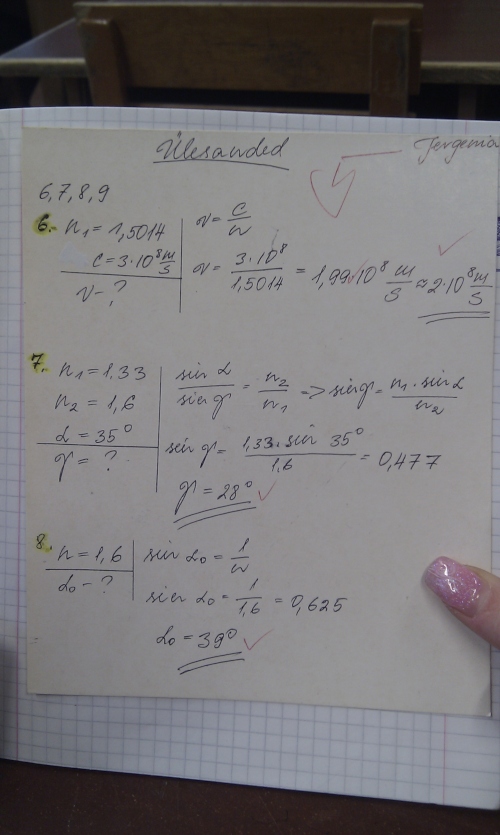 Ülesanded
6, 7, 8, 9
6. n₁ = 1,5014
c = 3·10⁸ m/s
v - ?
v = c/n
v = 3·10⁸/1,5014 = 1,99·10⁸ m/s ≈ 2·10⁸ m/s
7. n₁ = 1,33
n₂ = 1,6
α = 35°
γ = ?
sin α/sin γ = n₂/n₁ => sin γ = n₁·sin α/n₂
sin γ = 1,33·sin 35°/1,6 = 0,477
γ = 28°
8. n = 1,6
α₀ - ?
sin α₀ = 1/n
sin α₀ = 1/1,6 = 0,625
α₀ = 39°